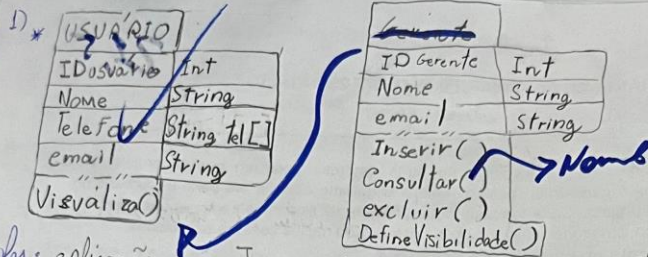 1) * USUÁRIO
IDusuário Int
Nome String
Telefone String tel[]
email String
Visualiza()
Gerente
ID Gerente Int
Nome String
email String
Inserir()
Consultar() Nome
excluir()
DefineVisibilidade()